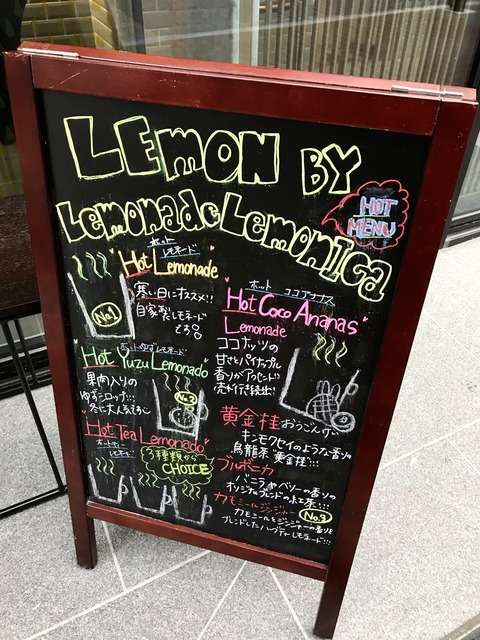 LEMON BY
Lemonade Lemonica
HOT
MENU
ホット レモネード
Hot Lemonade
寒い日にオススメ!!
自家製レモネード
No.1
ホットゆずレモネード
Hot Yuzu Lemonado
果肉入りの
ゆずシロップ!!!
No.2
Hot Tea Lemonado
ホットティー
レモネード
3種類から
CHOICE
ホット ココアナナス
Hot Coco Ananas
Lemonade
ココナッツの
甘さとパイナップル
香りがアクセント
売れ行き続出!
黄金桂 おうごんけい
キンモクセイのような香りの
烏龍茶"黄金桂"!!!
ブルボニカ
バニラやベリーの香りの
オリジナルブレンドの紅茶!!!
カモミールジンジャー
No.3
カモミールとジンジャーの香りを
ブレンドしたハーブティーレモネード!!!